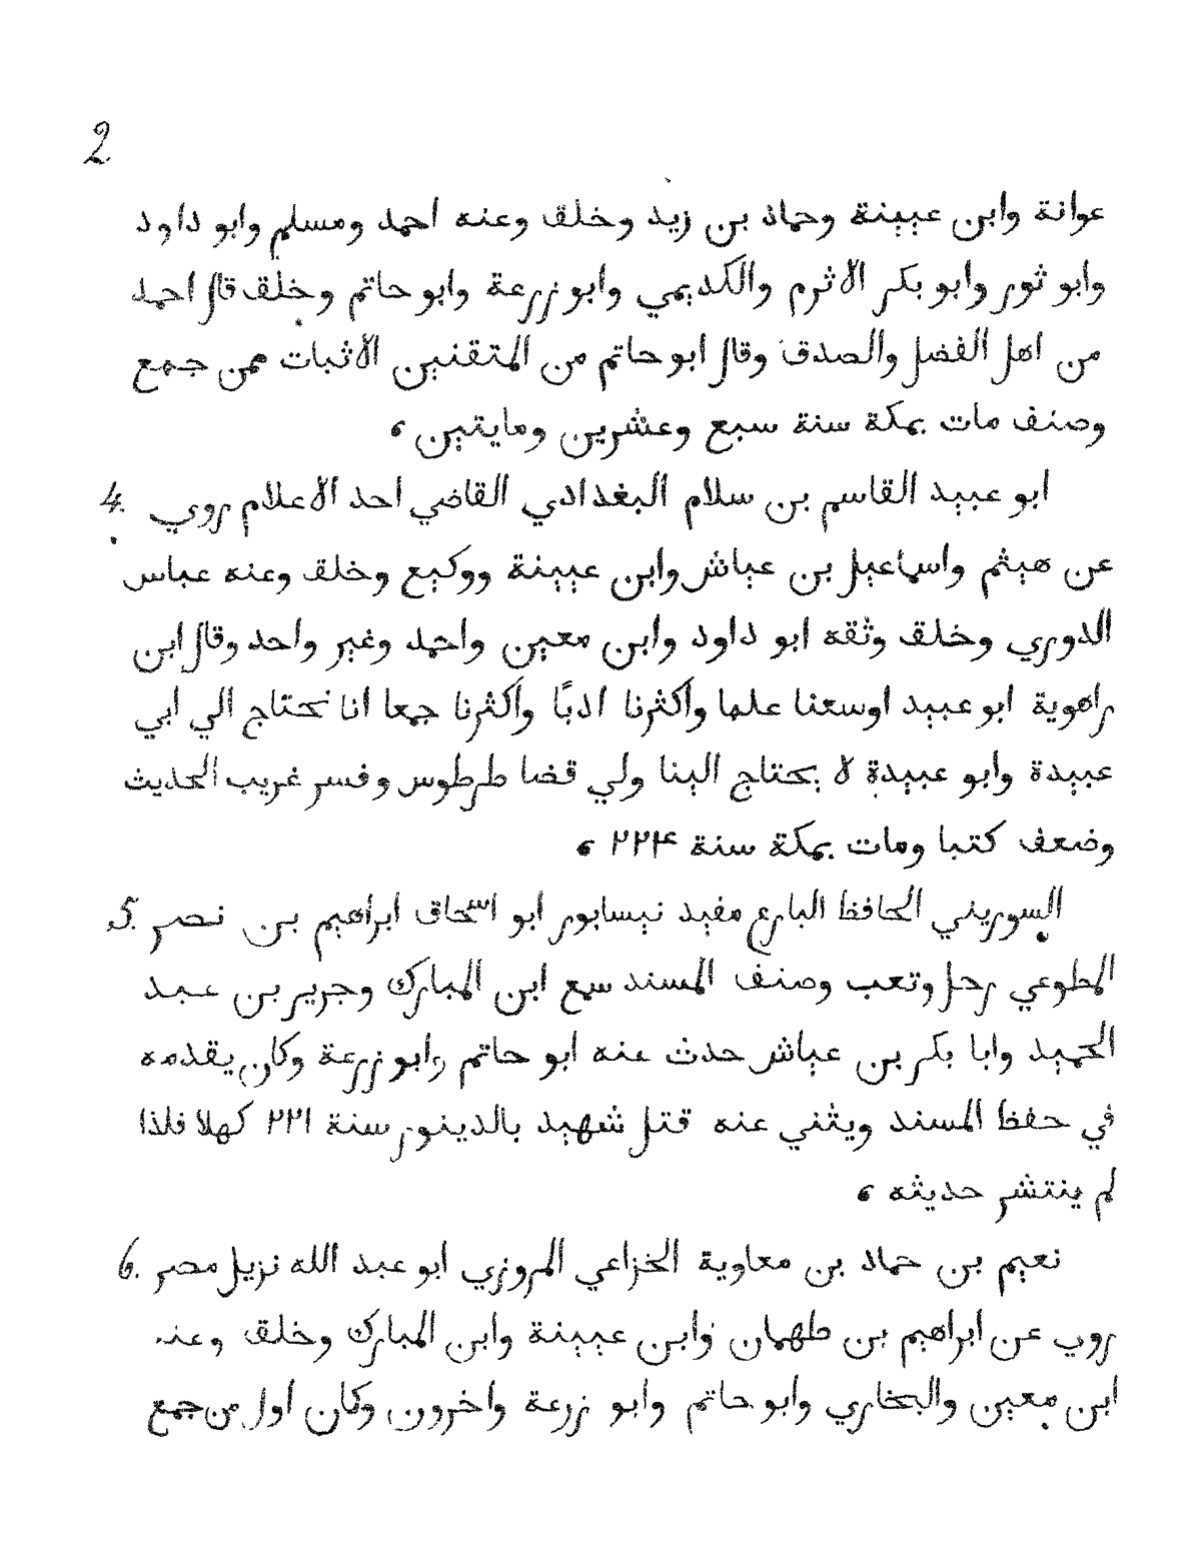 2
عوانة وابن عيينة وحماد بن زيد وخلق وعنه احمد ومسلم وابو داود
وابو ثور وابو بكر الاثرم والكديمي وابو زرعة وابو حاتم وخلق قال احمد
من اهل الفضل والصدق وقال ابو حاتم من المتقنين الاثبات ممن جمع
وصنف مات بمكة سنة سبع وعشرين ومايتين ،
4. ابو عبيد القاسم بن سلام البغدادي القاضي احد الاعلام روي
عن هيثم واسماعيل بن عياش وابن عيينة ووكيع وخلق وعنه عباس
الدوري وخلق وثقه ابو داود وابن معين واحمد وغير واحد وقال ابن
راهوية ابو عبيد اوسعنا علما وأكثرنا ادبًا وأكثرنا جمعا انا نحتاج الي ابي
عبيدة وابو عبيدة لا يحتاج الينا ولي قضا طرطوس وفسر غريب الحديث
وضعف كتبا ومات بمكة سنة ٢٢۴ ،
5. السوريني الحافظ البارع مفيد نيسابور ابو اسحاق ابراهيم بن نصر
المطوعي رحل وتعب وصنف المسند سمع ابن المبارك وجرير بن عبد
الحميد وابا بكر بن عياش حدث عنه ابو حاتم وابو زرعة وكان يقدمه
في حفظ المسند ويثني عنه قتل شهيد بالدينور سنة ٢٢١ كهلا فلذا
لم ينتشر حديثه ،
6. نعيم بن حماد بن معاوية الخزاعي المروزي ابو عبد الله نزيل مصر
روي عن ابراهيم بن طهمان وابن عيينة وابن المبارك وخلق وعنه
ابن معين والبخاري وابو حاتم وابو زرعة واخرون وكان اول من جمع